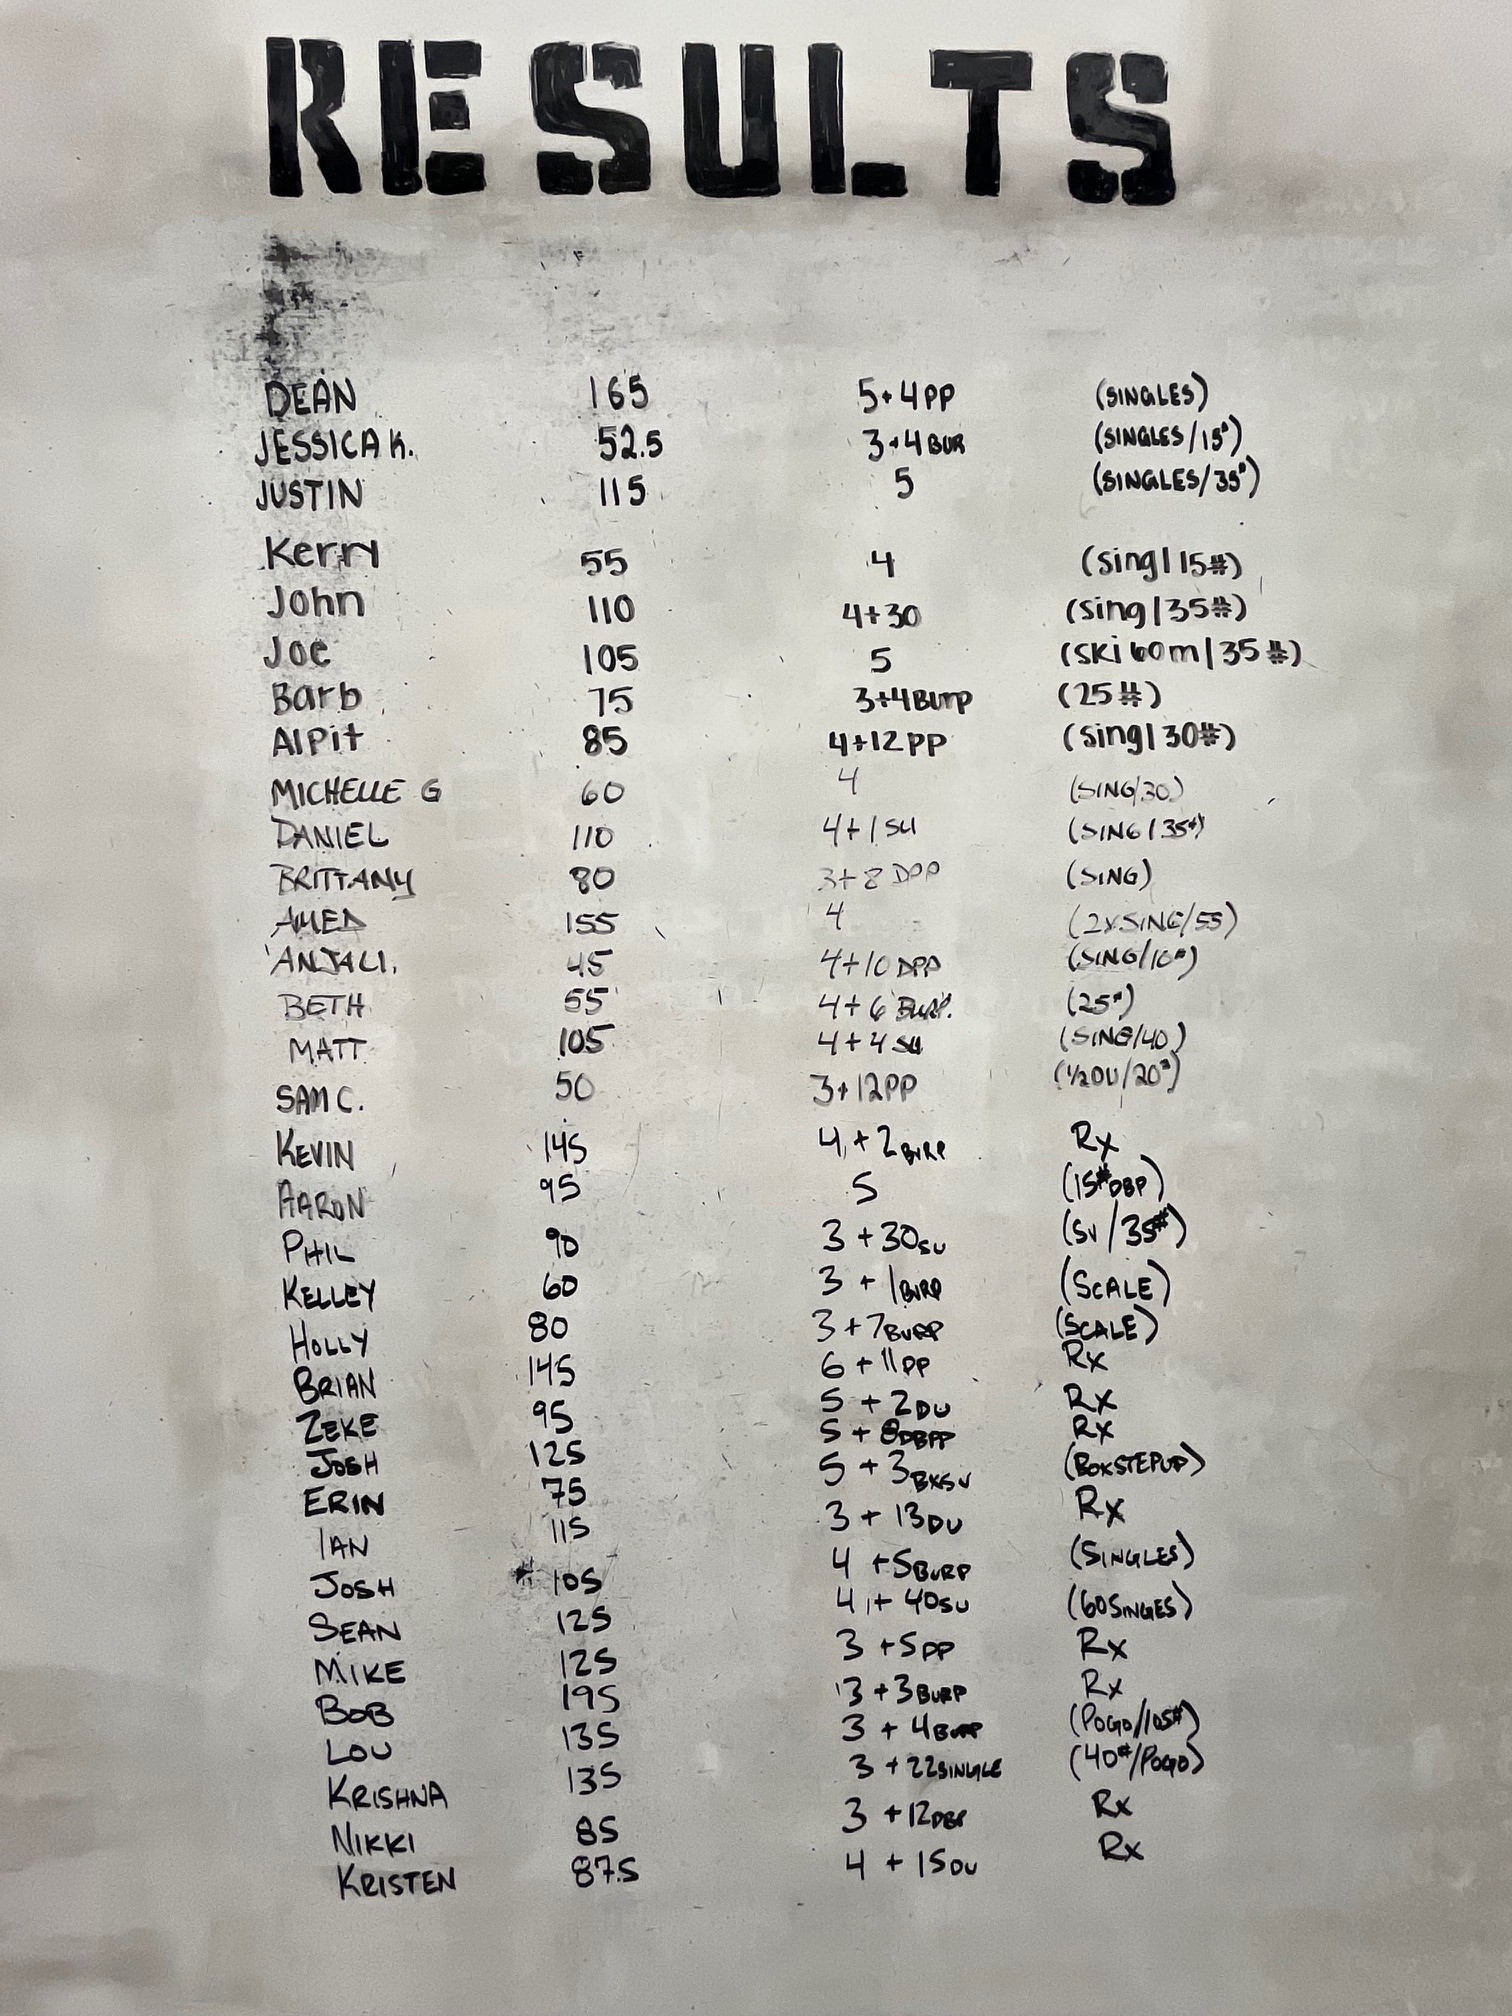 RESULTS
DEAN 165 5+4PP (SINGLES)
JESSICA K. 52.5 3+4BUR (SINGLES/15#)
JUSTIN 115 5 (SINGLES/35#)
Kerry 55 4 (sing|15#)
John 110 4+30 (sing|35#)
Joe 105 5 (ski 60m|35#)
Barb 75 3+4Burp (25#)
Alpit 85 4+12PP (sing|30#)
MICHELLE G 60 4 (SING/30)
DANIEL 110 4+1SU (SING/35#)
BRITTANY 80 3+8 DPP (SING)
AMED 155 4 (2xSING/55)
ANJALI. 45 4+10 DPP (SING/10#)
BETH 55 4+6 BURP. (25#)
MATT 105 4+4 SU (SING/40)
SAM C. 50 3+12PP (1/2DU/20#)
KEVIN 145 4+2BURP Rx
AARON 95 5 (15#DBP)
PHIL 90 3+30SU (SU/35#)
KELLEY 60 3+1BURP (SCALE)
HOLLY 80 3+7BURP (SCALE)
BRIAN 145 6+11PP Rx
ZEKE 95 5+2DU Rx
JOSH 125 5+8DBPP Rx
ERIN 75 5+3BXSU (BOXSTEPUP)
IAN 115 3+13DU Rx
JOSH 105 4+5BURP (SINGLES)
SEAN 125 4+40SU (60SINGES)
MIKE 125 3+5PP Rx
BOB 195 3+3BURP Rx
LOU 135 3+4BURP (POGO/105#)
KRISHNA 135 3+22SINGLE (40#/POGO)
NIKKI 85 3+12DBP Rx
KRISTEN 87.5 4+15DU Rx